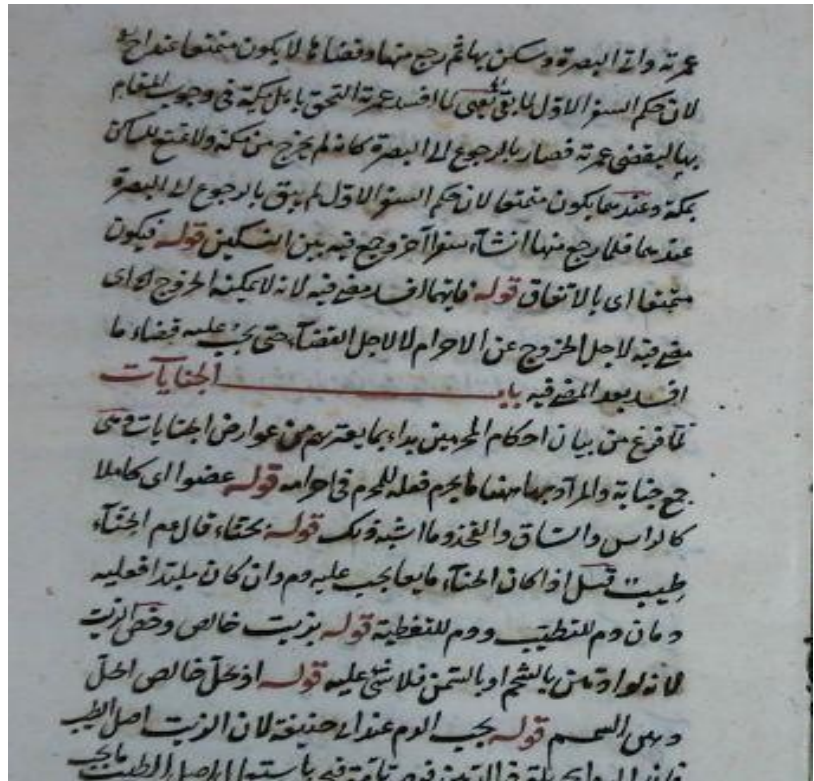 عمرته واتى البصرة وسكن بها ثم رجع منها وقضاها لا يكون متمتعا عند ابى ح
لان حكم السفر الاول لما بقى يعنى لما افسد عمرته التحق باهل مكة فى وجوب المقام
بها ليقضى عمرته فصار بالرجوع الى البصرة كانه لم يخرج من مكة ولا تمتع للساكن
بمكة وعندهما يكون متمتعا لان حكم السفر الاول لم يبق بالرجوع الى البصرة
عندهما فلما رجع منها انشأ سفرا آخر وجمع فيه بين النسكين قوله فيكون
متمتعا اى بالاتفاق قوله فايهما افسد مضى فيه لانه لا يمكنه الخروج اى
مضى فيه لاجل الخروج عن الاحرام لا لاجل القضآء حتى يجب عليه قضاء ما
افسد بعد المضى فيه باب الجنايات
لما فرغ من بيان احكام المحرمين بداء بما يعتريهم من عوارض الجنايات وهى
جمع جناية والمراد بها ههنا ما يحرم فعله للمحرم فى احرامه قوله عضوا اى كاملا
كالراس والساق والفخذ وما اشبه ذلك قوله بحناء قال عم الحنآء
طيب قيل اذا كان الحنآء مايعا يجب عليه دم وان كان ملبدا فعليه
دمان دم للتطيب ودم للتغطية قوله بزيت خالص وخص الزيت
لانه لو ادهن بالشحم او بالسمن فلا شئ عليه قوله او بحل خالص الحل
دهن السمسم قوله يجب الدم عند ابى حنيفة لان الزيت اصل الطيب